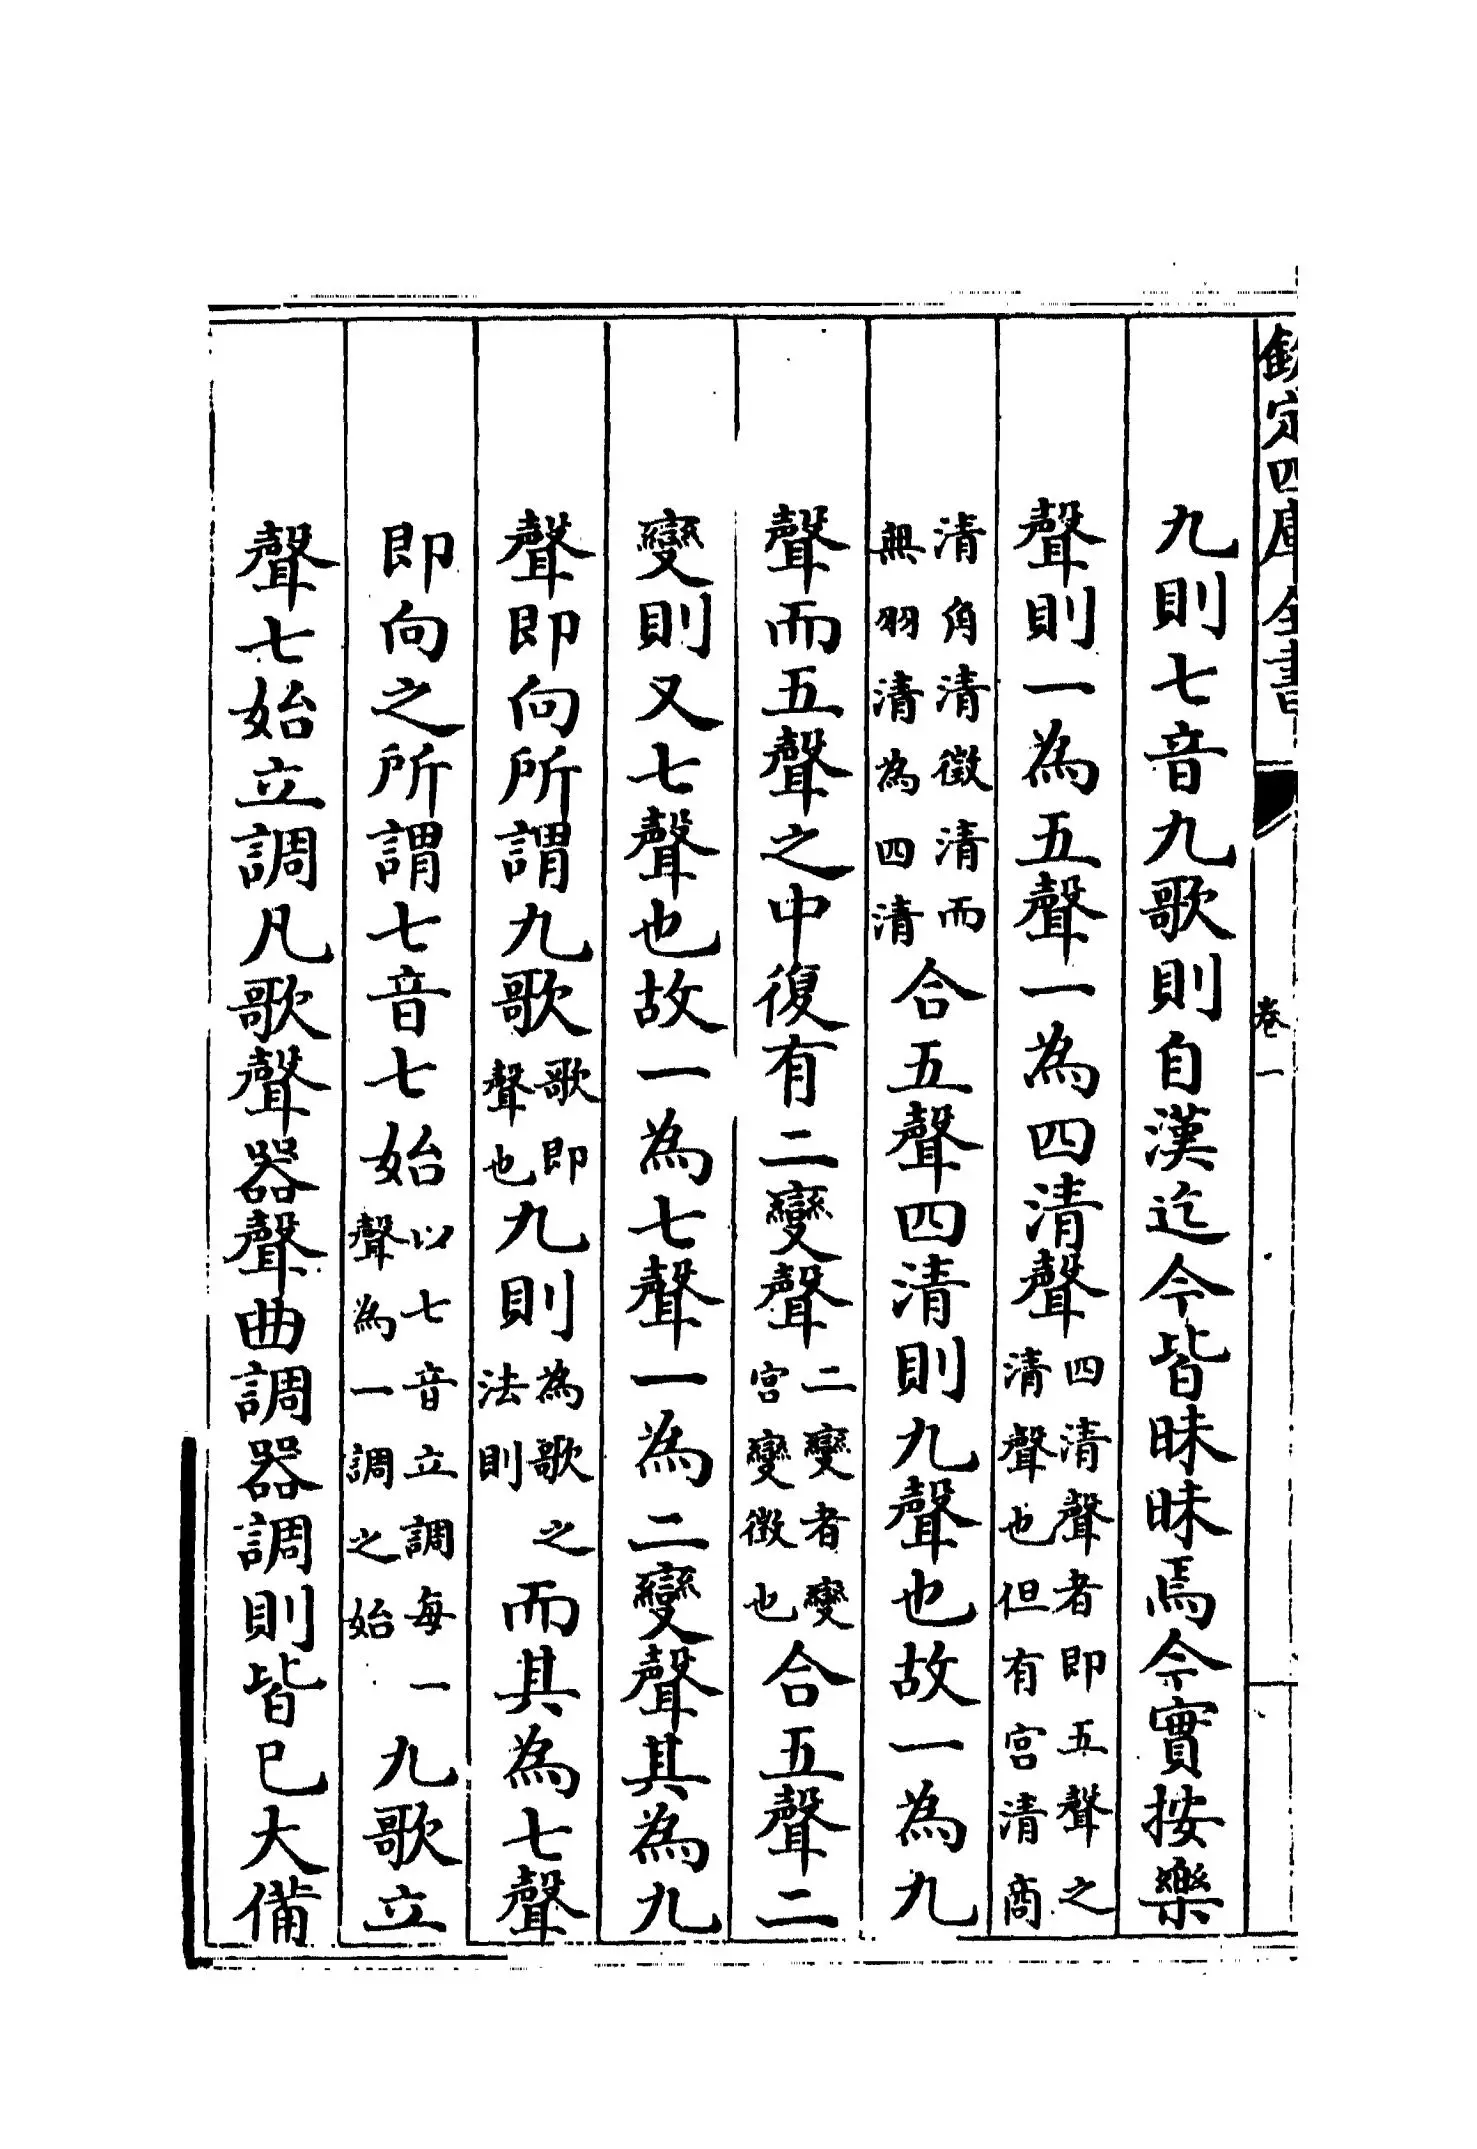 欽定四庫全書 卷一
九則七音九歌則自漢迄今皆昧昧焉今實按樂
聲則一為五聲一為四清聲四清聲者即五聲之清聲也但有宮清商
清角清徵清而無羽清為四清合五聲四清則九聲也故一為九
聲而五聲之中復有二變聲二變者變宮變徵也合五聲二
變則又七聲也故一為七聲一為二變聲其為九
聲即向所謂九歌歌即聲也九則為歌之法則而其為七聲
即向之所謂七音七始以七音立調每一聲為一調之始九歌立
聲七始立調凡歌聲器聲曲調器調則皆已大備